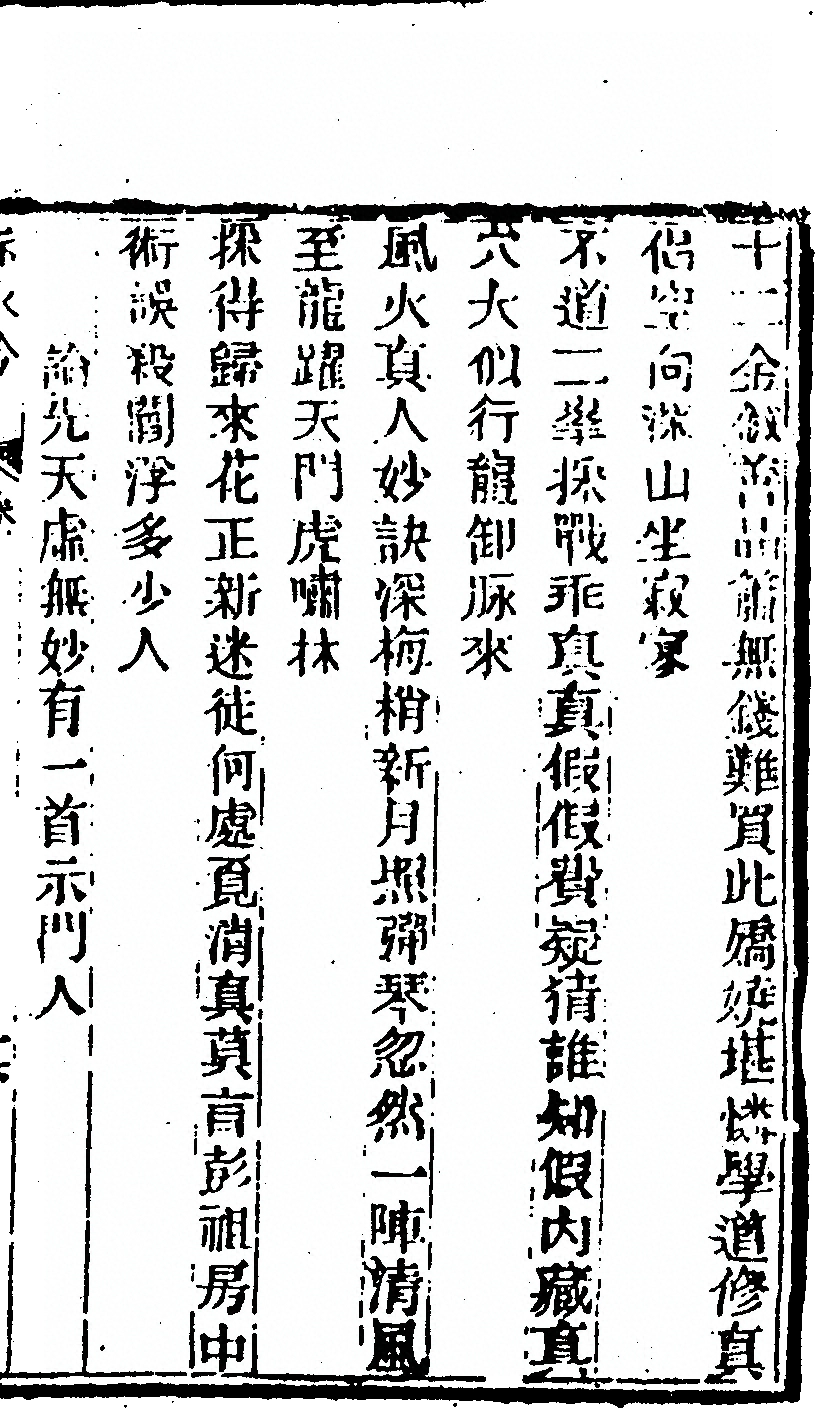 十二金釵품品簫無錢難買此嬌嬈堪憐學道修真
侶空向深山坐寂寥
求道二學採戰乖真真假假費疑猜誰知假內藏真
穴大似行龍御脉來
風火真人妙訣深梅梢新月照彈琴忽然一陣清風
至龍躍天門虎嘯林
採得歸來花正新迷徒何處覓消真莫言彭祖房中
術誤殺閻浮多少人
論先天虛無妙有一首示門人